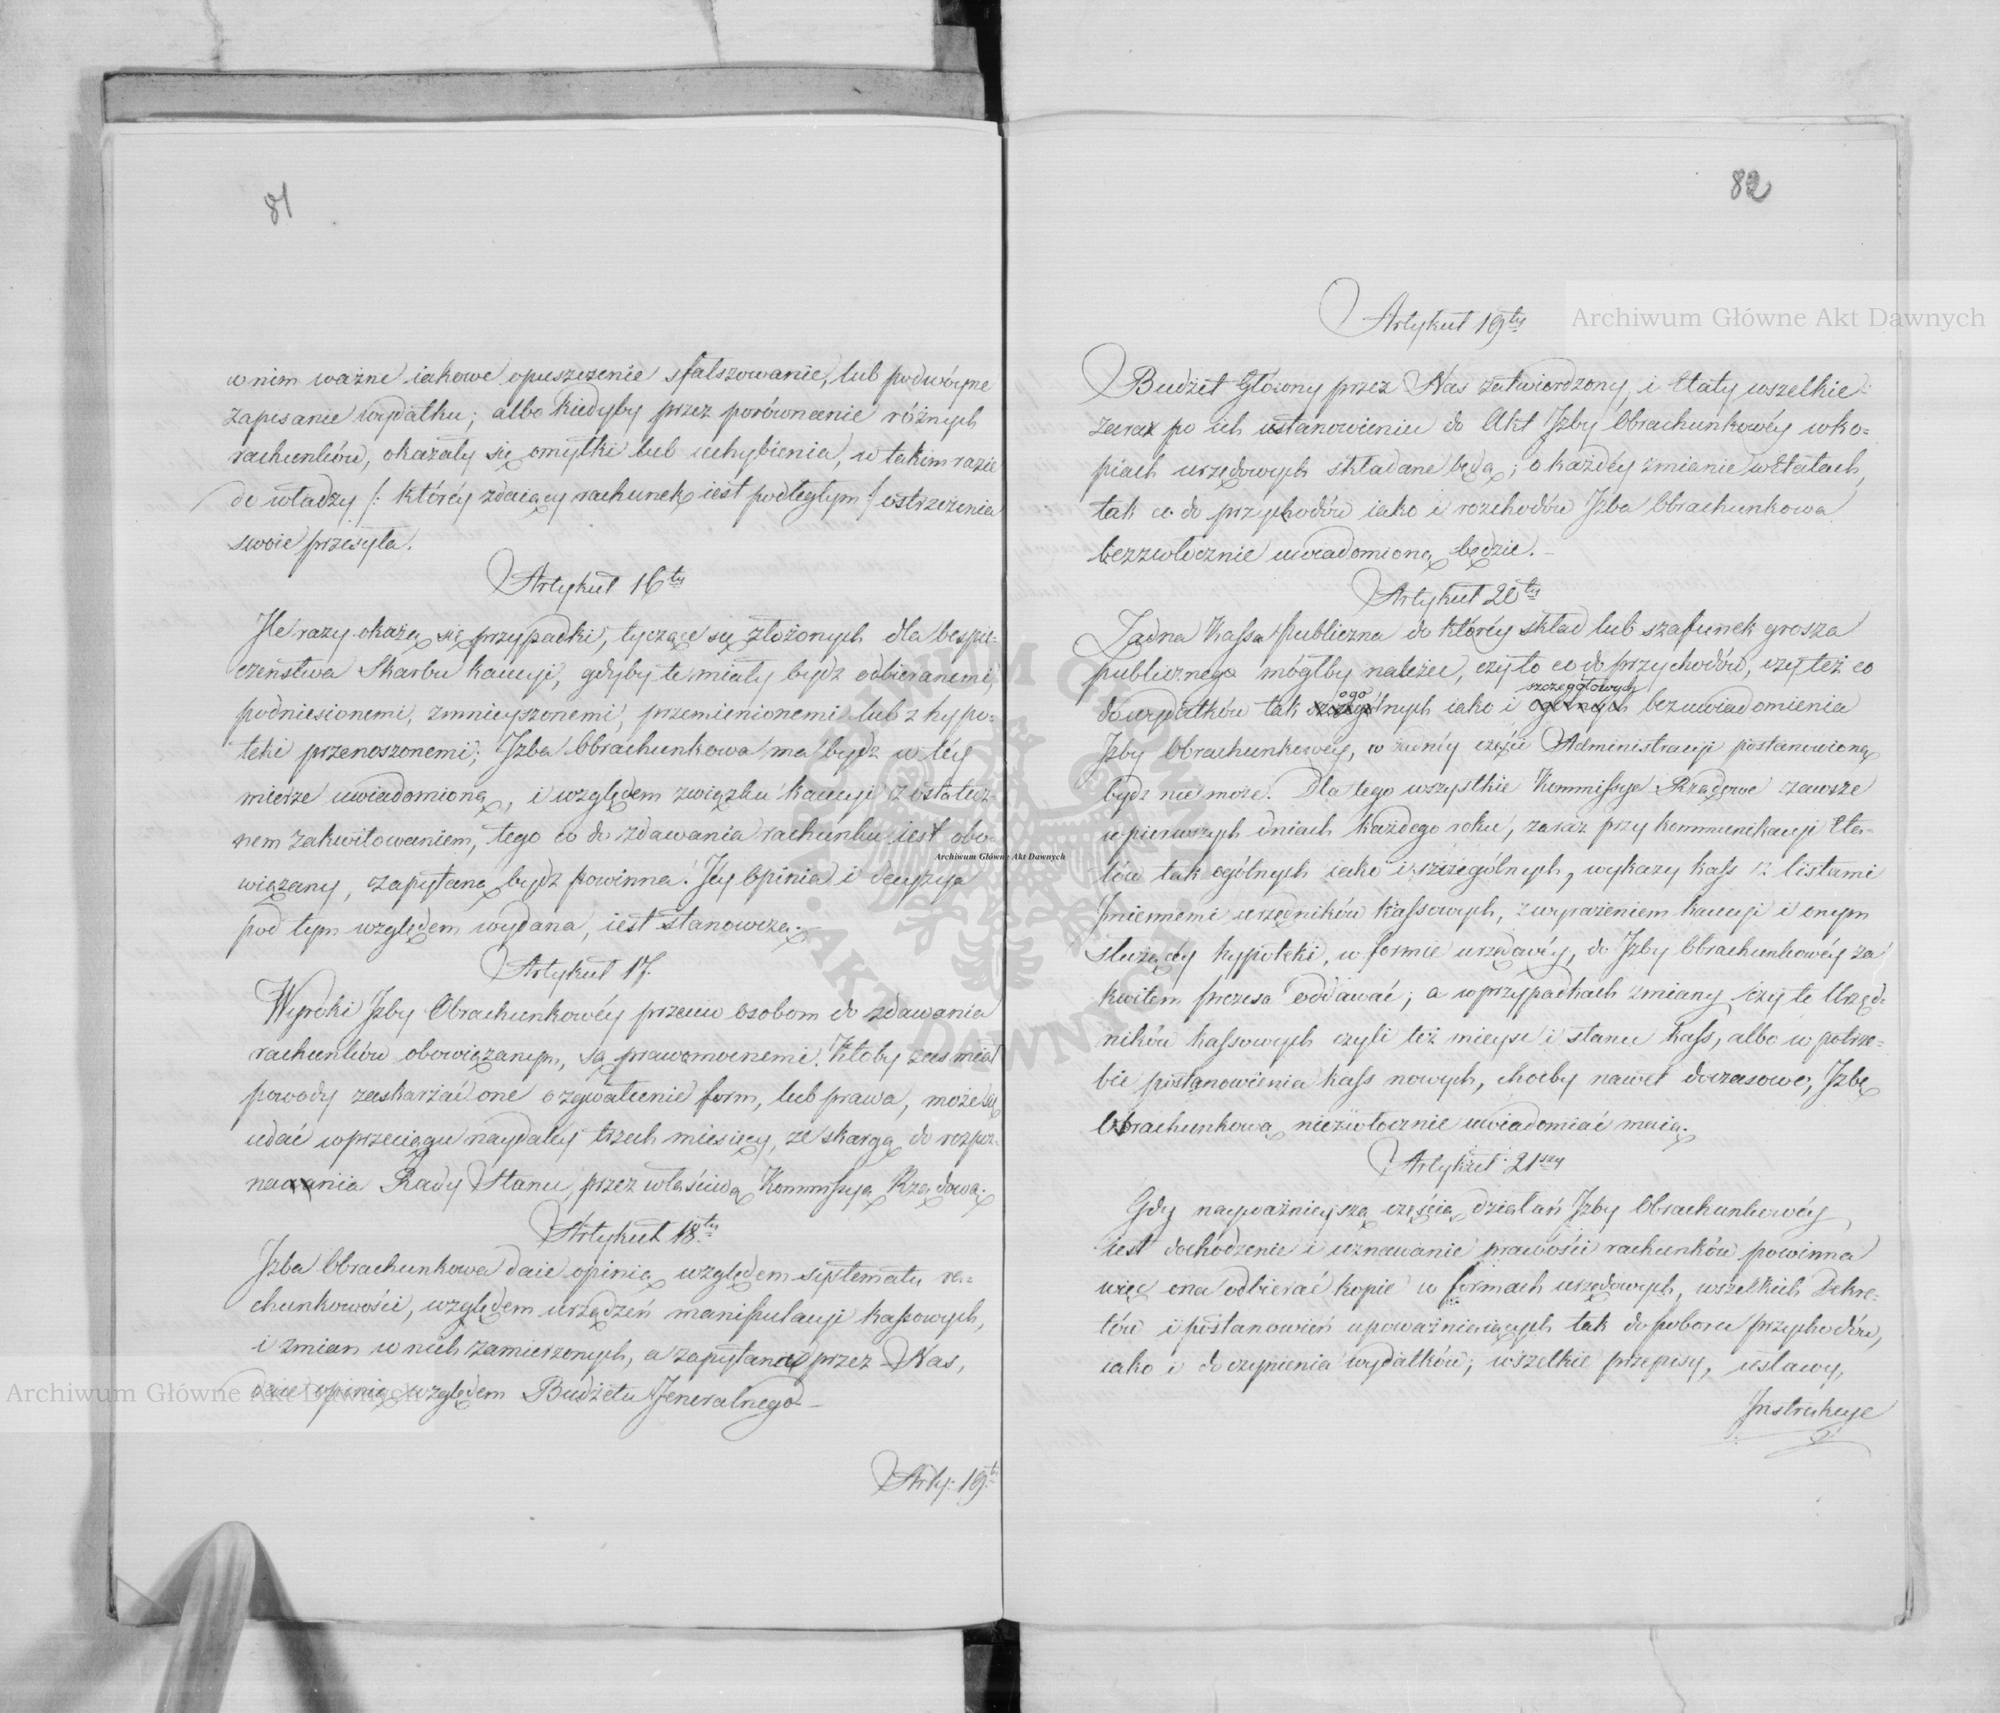 81
w nim ważne iakowe opuszczenie sfałszowanie, lub podwóyne
zapisanie wydatku; albo kiedyby przez porównanie różnych
rachunków, okazały się omyłki lub uchybienia, w takim razie
do władzy /: któréy zdaiący rachunek iest podległym :/ ostrzeżenia
swoie przesyła.
Artykuł 16ty
Ile razy okażą się przypadki, tyczące się złożonych dla bespie-
czeństwa Skarbu kaucyi, gdyby te miały bydź odbieranemi,
podniesionemi, zmnieyszonemi, przemienionemi lub z hypo-
teki przenoszonemi; Izba Obrachunkowa ma bydź w téy
mierze uwiadomioną, i względem związku kaucyi z ostatecz-
nem zakwitowaniem, tego co do zdawania rachunku iest obo-
wiązany, zapytaną bydź powinna. Jéy Opinia i decyzya
pod tym względem wydana, iest stanowcza.
Artykuł 17.
Wyroki Izby Obrachunkowéy przeciw osobom do zdawania
rachunków obowiązanym, są prawomocnemi. Ktoby zaś miał
powody zaskarżać one o zgwałcenie form, lub prawa, może się
udać w przeciągu naydaléy trzech miesięcy, ze skargą do rozpoz-
nawania Rady Stanu, przez właściwą Kommissyą Rządową.
Artykuł 18ty
Izba Obrachunkowa daie opinią względem systematu ra-
chunkowości, względem urządzeń manipulacyi kassowych,
i zmian w nich zamierzonych, a zapytana przez Nas,
daie opinią względem Budżetu Jeneralnego
Arty: 19ty
82
Artykuł 19ty
Budżet Główny przez Nas zatwierdzony, i Etaty wszelkie
zaraz po ich ustanowieniu do Akt Izby Obrachunkowéy w ko-
piach urzędowych składane będą; o każdéy zmianie w Etatach,
tak co do przychodów iako i rozchodów Izba Obrachunkowa
bezzwłocznie uwiadomioną będzie.
Artykuł 20ty
Żadna Kassa publiczna do któréy skład lub szafunek grosza
publicznego mógłby należeć, czy to co do przychodów, czy też co
ogó szczegółowych
do wydatków tak szczególnych iako i ogólnych bez uwiadomienia
Izby Obrachunkowéy, w żadnéy części Administracyi postanowioną
bydź nie może. Dla tego wszystkie Kommissye Rządowe zawsze
w pierwszych dniach każdego roku, zaraz przy kommunikacyi Eta-
tów tak ogólnych iako i szczególnych, wykazy kass z listami
Imiennemi urzędników kassowych, z wyrażeniem kaucyi i onym
służącéy hypoteki, w formie urzędowéy, do Izby Obrachunkowéy za
kwitem prezesa oddawać; a w przypadkach zmiany, czy to Urzęd-
ników kassowych czyli też mieysc i stanu kass, albo w potrze-
bie postanowienia kass nowych, choćby nawet doczasowo, Izbę
Obrachunkową niezwłocznie uwiadomiać maią.
Artykuł 21szy
Gdy nayważnieyszą częścią działań Izby Obrachunkowéy
iest dochodzenie i uznawanie prawości rachunków powinna
więc ona odbierać kopie w formach urzędowych, wszelkich Dekre-
tów i postanowień upoważniaiących tak do poboru przychodów,
iako i do czynienia wydatków; wszelkie przepisy, ustawy,
Instrukcye
Archiwum Główne Akt Dawnych
Archiwum Główne Akt Dawnych
Archiwum Główne Akt Dawnych
ARCHIWUM GŁÓWNE · AKT DAWNYCH ·